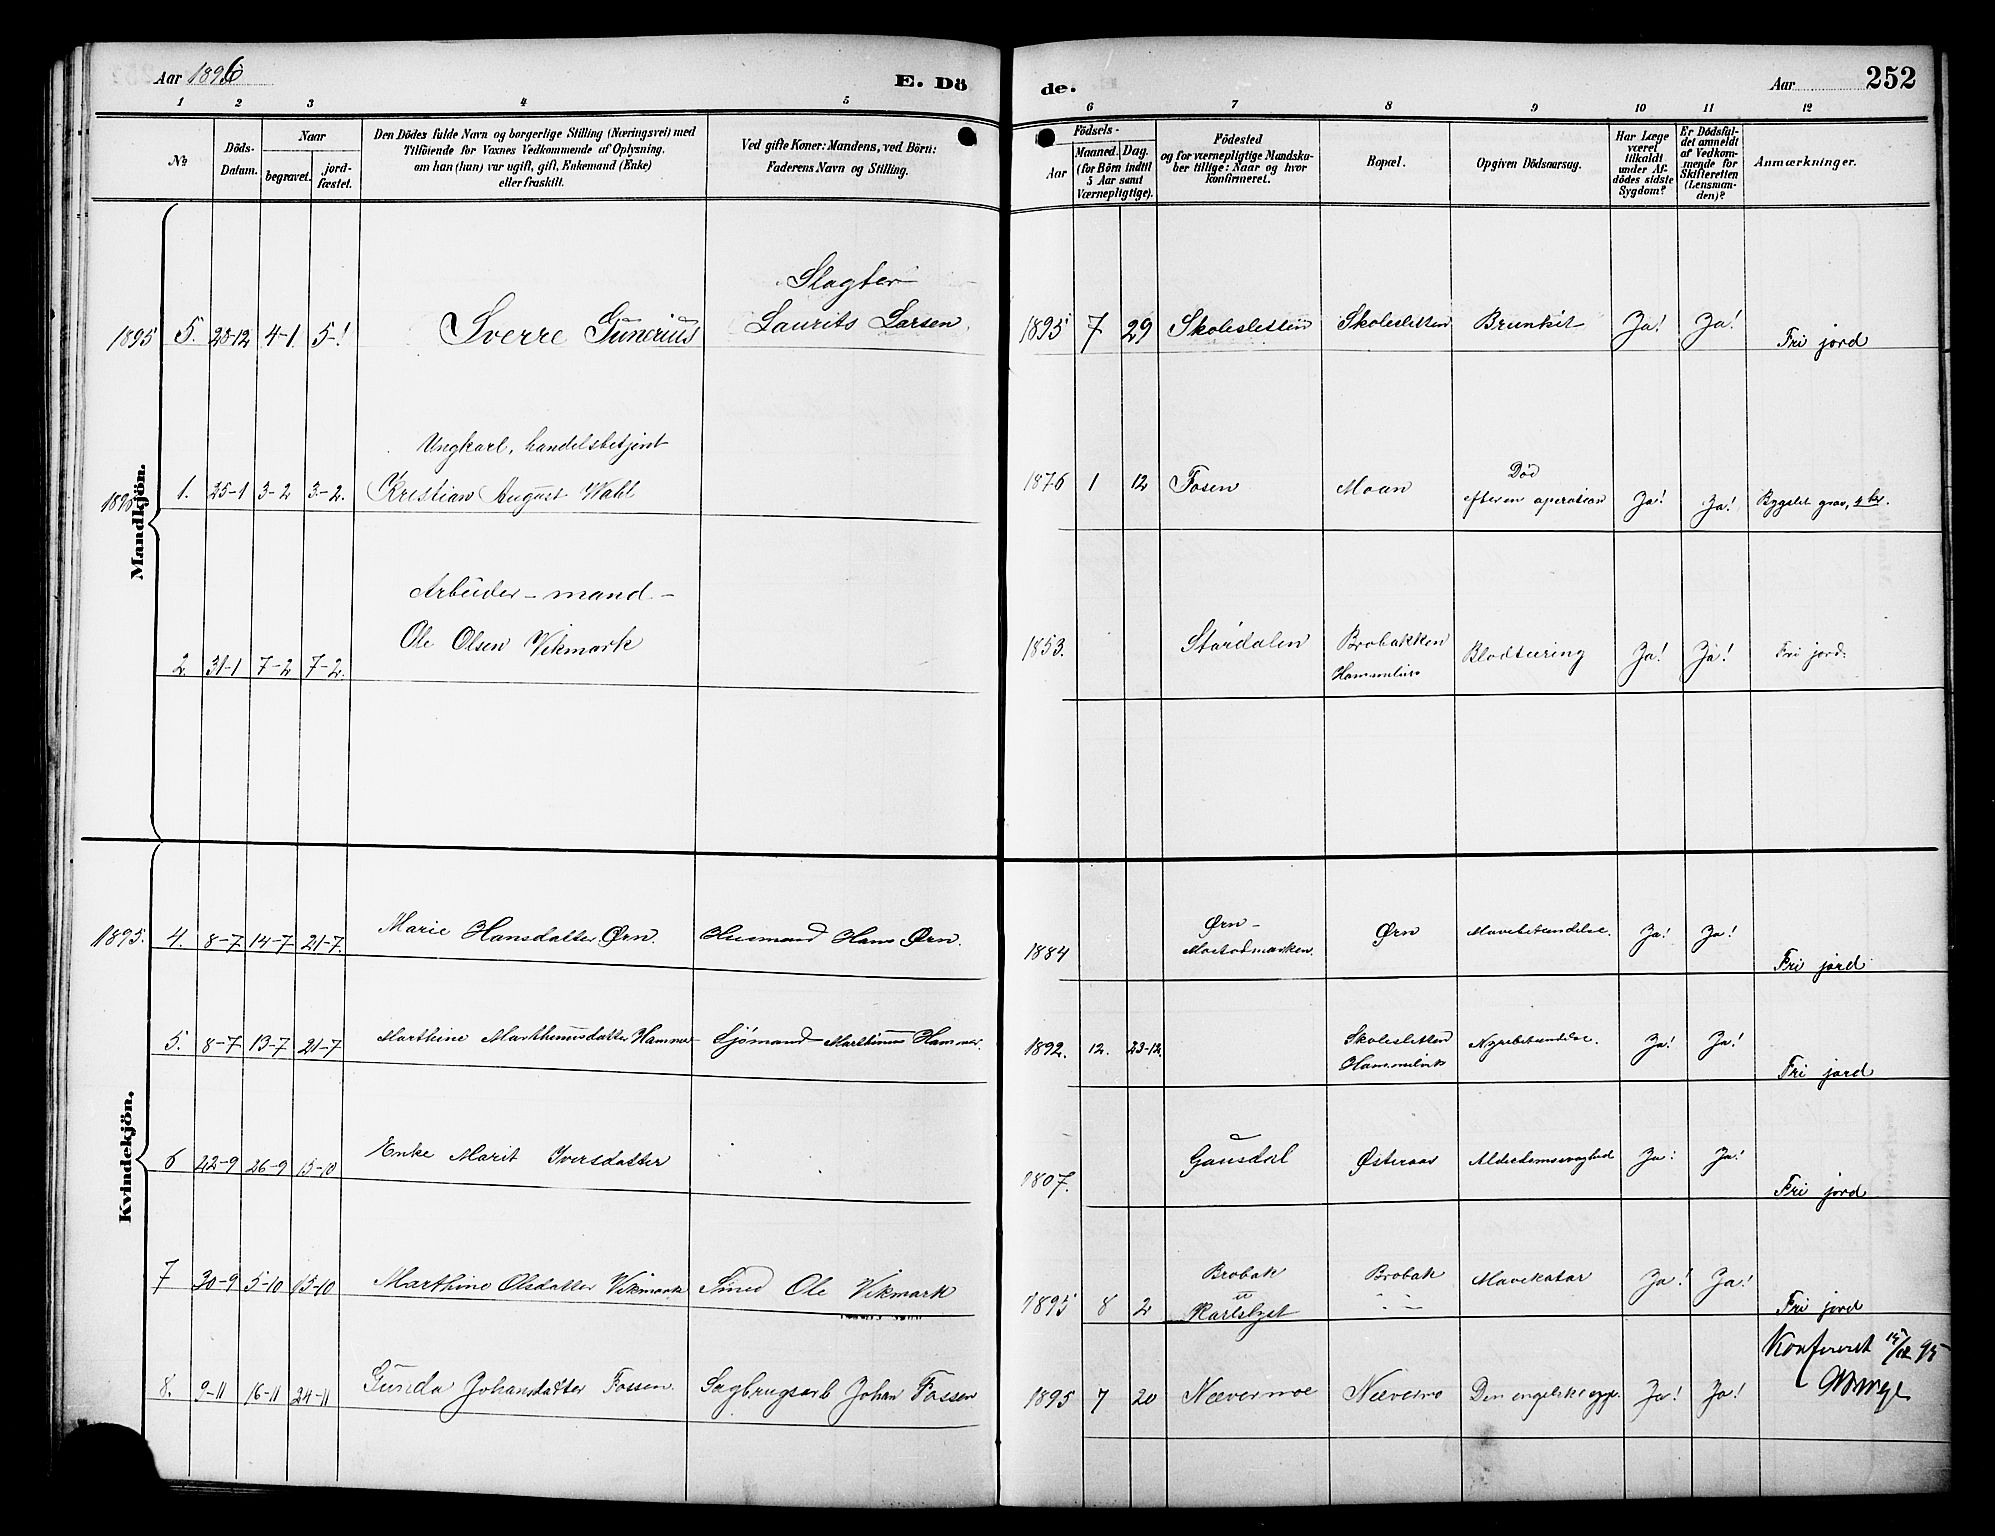 Aar 1896
E. Dö
de.
Aar
252
1 2 3 4 5 6 7 8 9 10 11 12
No
Döds-
Datum.
Naar
begravet.
jord-
fæstet.
Den Dödes fulde Navn og borgerlige Stilling (Næringsvei) med
Tilföiende for Voxnes Vedkommende af Oplysning,
om han (hun) var ugift, gift, Enkemand (Enke)
eller fraskilt.
Ved gifte Koner: Mandens, ved Börn:
Faderens Navn og Stilling.
Födsels-
Aar
Maaned. Dag.
(for Börn indtil
5 Aar samt
Værnepligtige).
Födested
og for værnepligtige Mandska-
ber tillige: Naar og hvor
konfirmeret.
Bopæl.
Opgiven Dödsaarsag.
Har Læge
været
tilkaldt
under Af-
dödes sidste
Sygdom?
Er Dödsfal-
det anmeldt
af Vedkom-
mende for
Skifteretten
(Lensman-
den)?
Anmærkninger.
Mandkjön.
Slagter
1895 5. 28-12 4-1 5-1 Sverre Gunerius Laurits Larsen 1895 7 29 Skolesletten Skolesletten Brunkit Ja! Ja! Fri jord
Ungkarl, handelsbetjent
Død
1. 25-1 3-2 3-2. Kristian August Wahl 1876 1 12 Fosen Moan efter en operation Ja! Ja! Bygslet grav, 4 kr.
Arbeider-mand-
2. 31-1 7-2 7-2. Ole Olsen Vikmark 1853. Størdalen Brobakken Blodtæring Ja! Ja! Fri jord.
Hammelvik
Kvindekjön.
Ørn-
1895. 4. 8-7 14-7 21-7. Marie Hansdatter Ørn. Husmand Hans Ørn. 1884 Mostadmarken. Ørn Mavebetændelse. Ja! Ja! Fri jord
5. 8-7 13-7 21-7 Marthine Marthinusdatter Hammer Sjømand Marthinus Hammer. 1892. 12. 23-12. Skolesletten Nyrebetændelse. Ja! Ja! Fri jord
Hammelvik
6 22-9 26-9 15-10 Enke Marit Iversdatter 1807. Gausdal Østeraas Alderdomssvaghed Ja! Ja! Fri jord
Brobak
7 30-9 5-10 15-10 Marthine Olsdatter Vikmark Smed Ole Vikmark 1895 8 2 Karlslyst Brobak Mavekatar Ja! Ja! Fri jord
8. 9-11 16-11 24-11 Gunda Johansdatter Fossen. Sagbrugsarb Johan Fossen 1895 7 20 Nævermoe Nævermo Den engelske syge. Ja! Ja! Konfereret 15/12 95